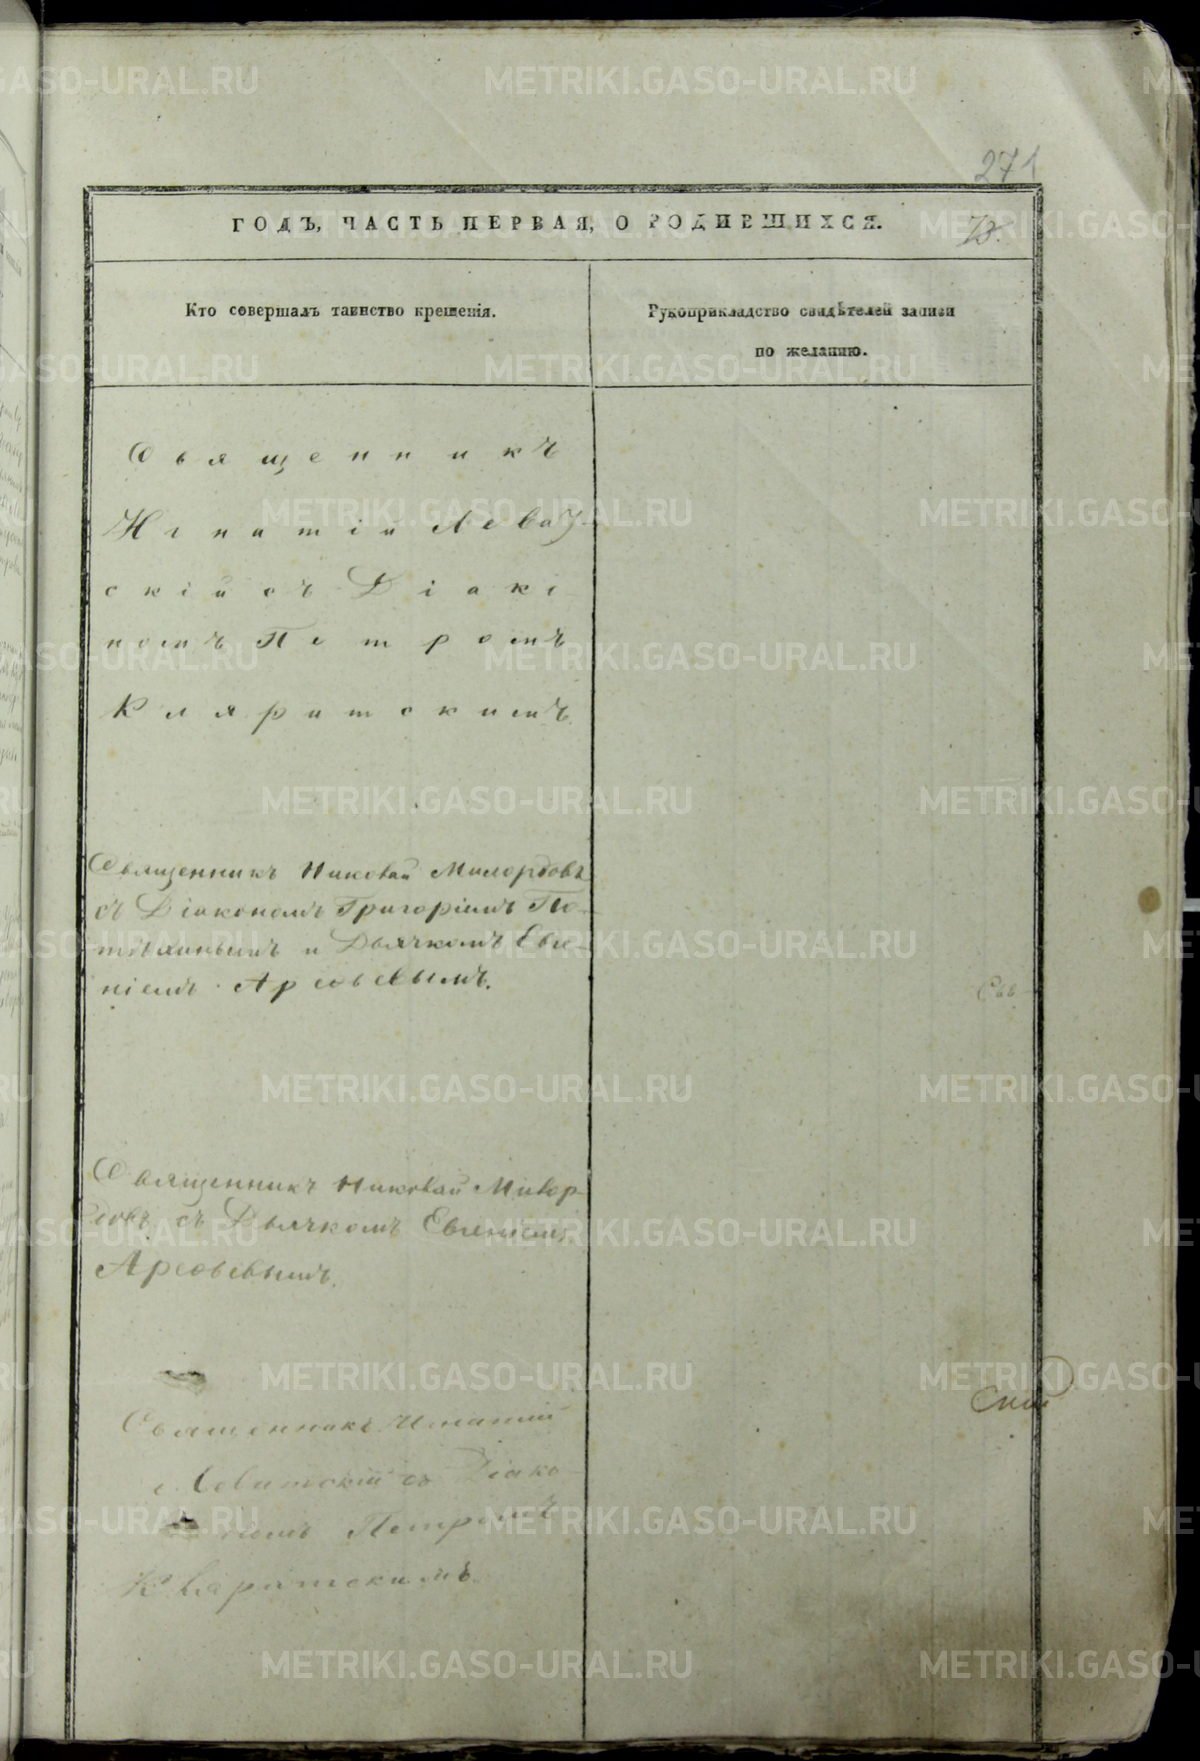 271
ГОДЪ, ЧАСТЬ ПЕРВАЯ, О РОДИВШИХСЯ.
73.
Кто совершалъ таинство крещенія.
Рукоприкладство свидѣтелей записи
по желанію.
Священникъ
Игнатій Левит-
скій съ Діако
номъ Петромъ
Кляритскимъ
Священникъ Николай
съ Діакономъ Григоріемъ По-
и Дьячкомъ Евге-
ніемъ
Священникъ Николай
съ Дьячкомъ Евгеніемъ
Священникъ Игнатій
Левитскій съ Діако
номъ Петромъ
Кляритскимъ
METRIKI.GASO-URAL.RU